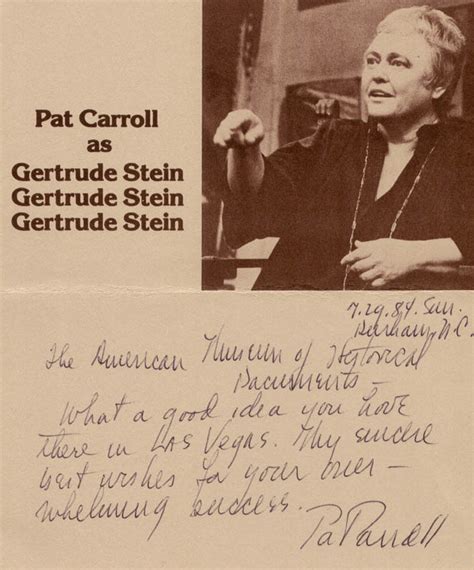 Pat Carroll
as
Gertrude Stein
Gertrude Stein
Gertrude Stein
7.29.84. Sun.
Durham, N.C.
The American Museum of Historical
Documents –
What a good idea you have
there in Las Vegas. My sincere
best wishes for your over –
whelming success.
Pat Carroll